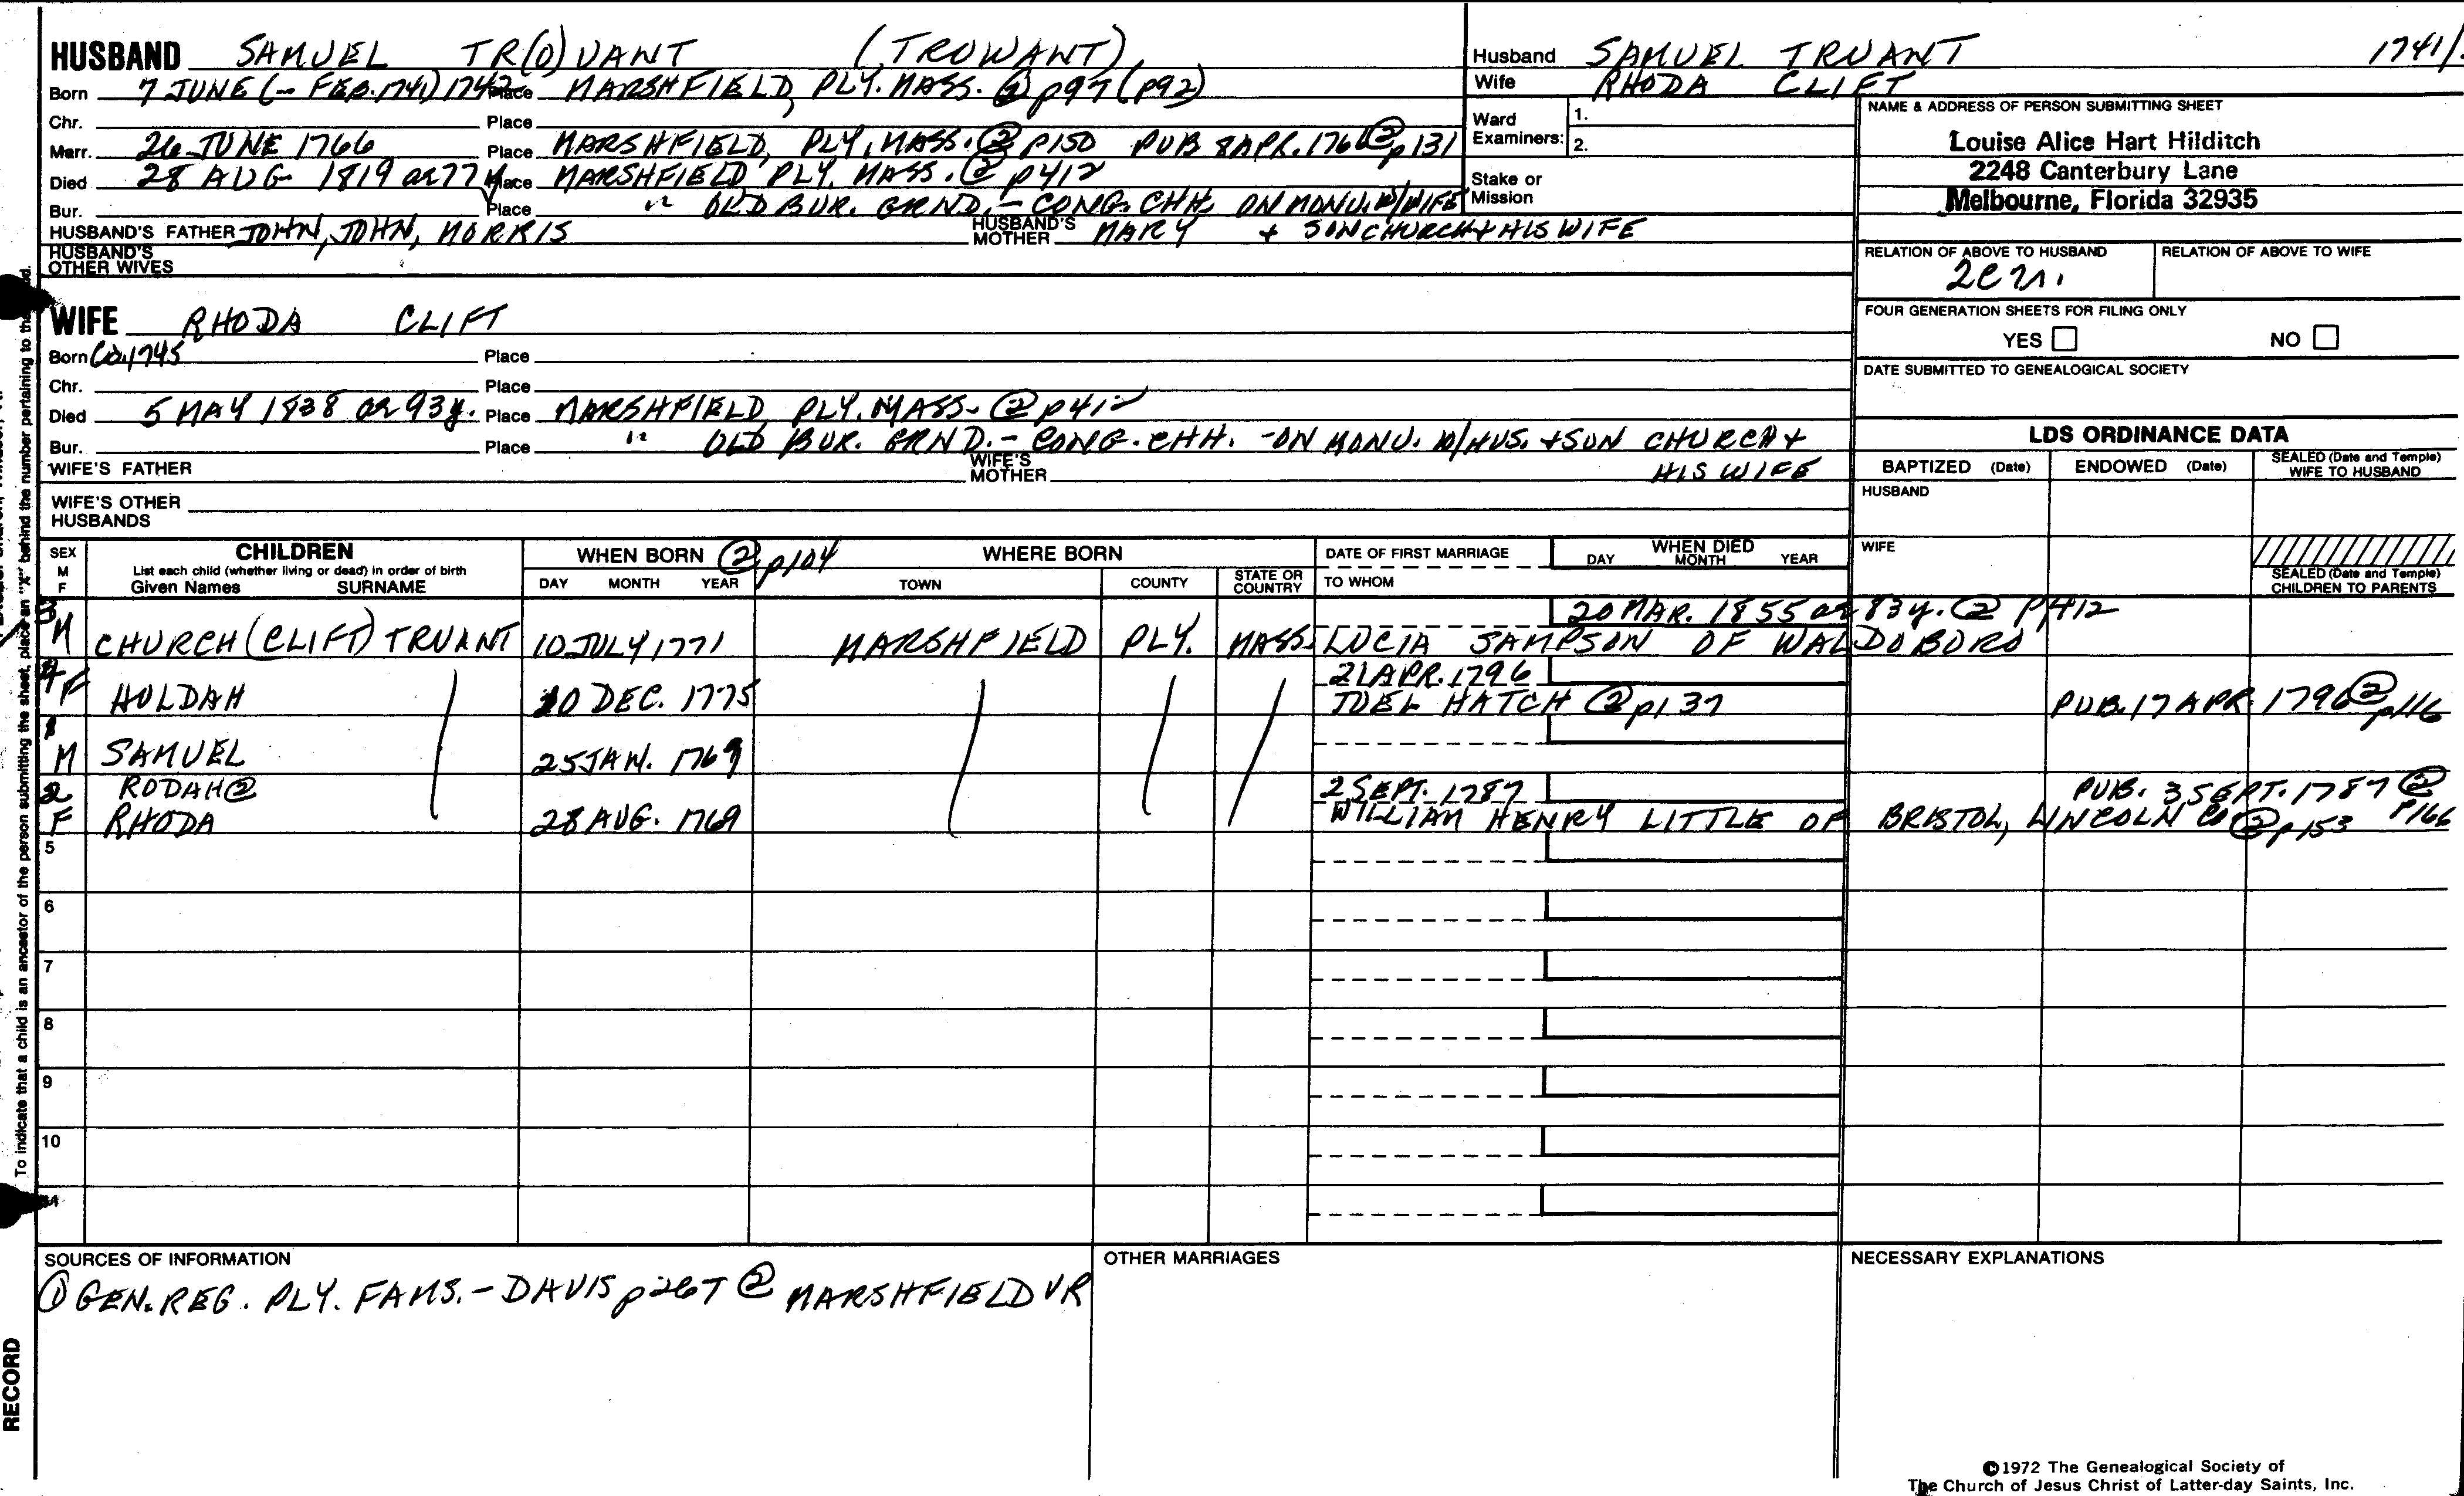 HUSBAND SAMUEL TR(O)UANT (TROWANT)
Born 7 JUNE (- FEB. 1741) 1742 Place MARSHFIELD, PLY. MASS. ② p97 (p92)
Chr. Place
Marr. 26 JUNE 1766 Place MARSHFIELD, PLY, MASS. ② p150 PUB 8 APR. 176 ② p131
Died 28 AUG 1819 ae 77y Place MARSHFIELD PLY. MASS. ② p412
Bur. Place " OLD BUR. GRND. - CONG. CHH. ON MONU. W/WIFE
HUSBAND'S FATHER JOHN, JOHN, MORRIS HUSBAND'S MOTHER MARY + SON CHURCH + HIS WIFE
HUSBAND'S OTHER WIVES
Husband SAMUEL TRUANT 1741/
Wife RHODA CLIFT
Ward Examiners: 1.
2.
Stake or Mission
NAME & ADDRESS OF PERSON SUBMITTING SHEET
Louise Alice Hart Hilditch
2248 Canterbury Lane
Melbourne, Florida 32935
RELATION OF ABOVE TO HUSBAND RELATION OF ABOVE TO WIFE
WIFE RHODA CLIFT
Born Ca 1745 Place
Chr. Place
Died 5 MAY 1838 ae 93y. Place MARSHFIELD PLY. MASS. ② p412
Bur. Place " OLD BUR. GRND. - CONG. CHH. - ON MONU. W/HUS. + SON CHURCH +
WIFE'S FATHER WIFE'S MOTHER HIS WIFE
WIFE'S OTHER HUSBANDS
FOUR GENERATION SHEETS FOR FILING ONLY
YES NO
DATE SUBMITTED TO GENEALOGICAL SOCIETY
LDS ORDINANCE DATA
BAPTIZED (Date) ENDOWED (Date) SEALED (Date and Temple) WIFE TO HUSBAND
HUSBAND
WIFE
SEALED (Date and Temple) CHILDREN TO PARENTS
SEX M F CHILDREN List each child (whether living or dead) in order of birth Given Names SURNAME
WHEN BORN ② p104 DAY MONTH YEAR
WHERE BORN TOWN COUNTY STATE OR COUNTRY
DATE OF FIRST MARRIAGE TO WHOM
WHEN DIED DAY MONTH YEAR
20 MAR. 1855 ae 83y. ② p412
3 M CHURCH (CLIFT) TRUANT 10 JULY 1771 MARSHFIELD PLY. MASS. LUCIA SAMPSON OF WALDOBORO
21 APR. 1796
4 F HULDAH 10 DEC. 1775 JOEL HATCH ② p137 PUB. 17 APR. 1796 ② p116
1 M SAMUEL 25 JAN. 1769
2 RODAH ② 2 SEPT. 1787 PUB. 3 SEPT. 1787 ② p166
F RHODA 28 AUG. 1769 WILLIAM HENRY LITTLE OF BRISTOL, LINCOLN CO ② p153
5
6
7
8
9
10
SOURCES OF INFORMATION
① GEN. REG. PLY. FAMS. - DAVIS p267 ② MARSHFIELD VR
OTHER MARRIAGES
NECESSARY EXPLANATIONS
©1972 The Genealogical Society of
The Church of Jesus Christ of Latter-day Saints, Inc.
To indicate that a child is an ancestor of the person submitting the sheet, place an "X" behind the number pertaining to
RECORD